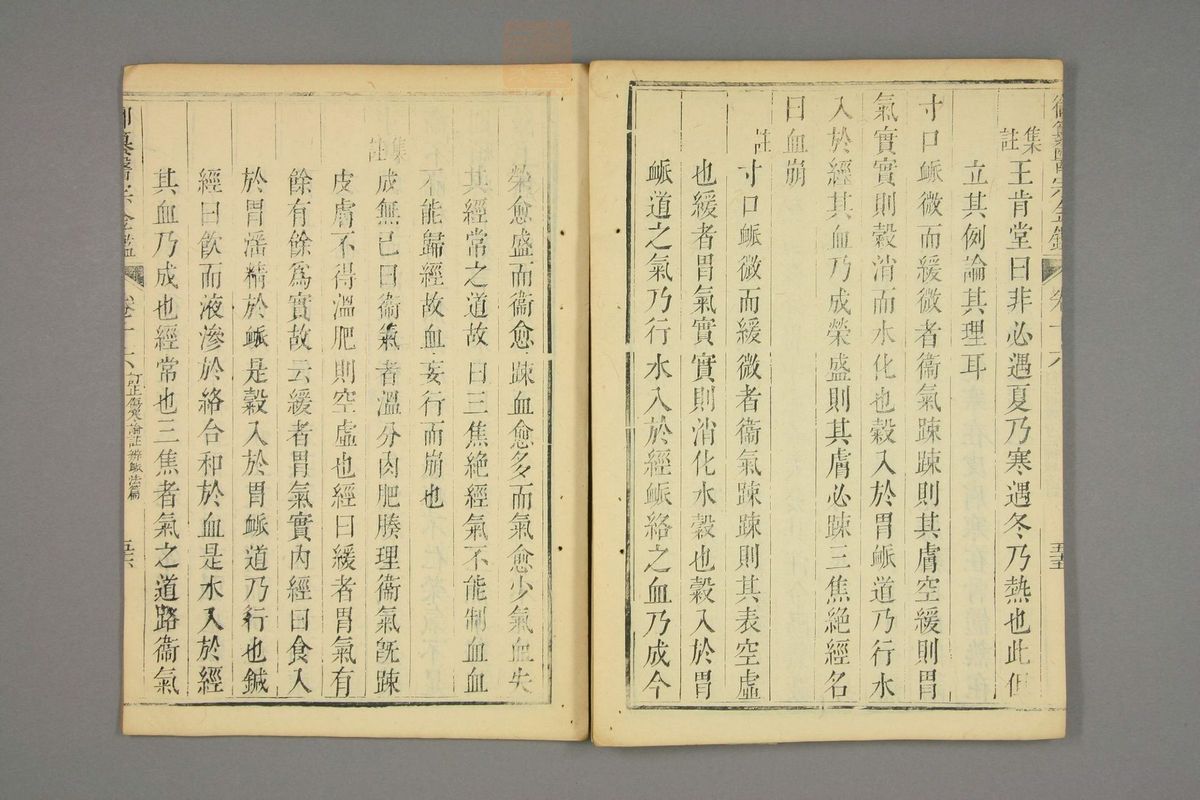 御纂醫宗金鑑 卷十六 五五
集註王肯堂曰非必遇夏乃寒遇冬乃熱也此但
立其例論其理耳
寸口脈微而緩微者衞氣踈踈則其膚空緩則胃
氣實實則穀消而水化也穀入於胃脈道乃行水
入於經其血乃成榮盛則其膚必踈三焦絶經名
曰血崩
註寸口脈微而緩微者衞氣踈踈則其表空虛
也緩者胃氣實實則消化水穀也穀入於胃
脈道之氣乃行水入於經脈絡之血乃成今
榮愈盛而衞愈踈血愈多而氣愈少氣血失
其經常之道故曰三焦絶經氣不能制血血
不能歸經故血妄行而崩也
集註成無已曰衞氣者溫分肉肥腠理衞氣旣踈
皮膚不得溫肥則空虛也經曰緩者胃氣有
餘有餘爲實故云緩者胃氣實內經曰食入
於胃淫精於脈是穀入於胃脈道乃行也鍼
經曰飮而液滲於絡合和於血是水入於經
其血乃成也經常也三焦者氣之道路衞氣
御纂醫宗金鑑 卷十六 訂正傷寒論註辨脈法篇 五六